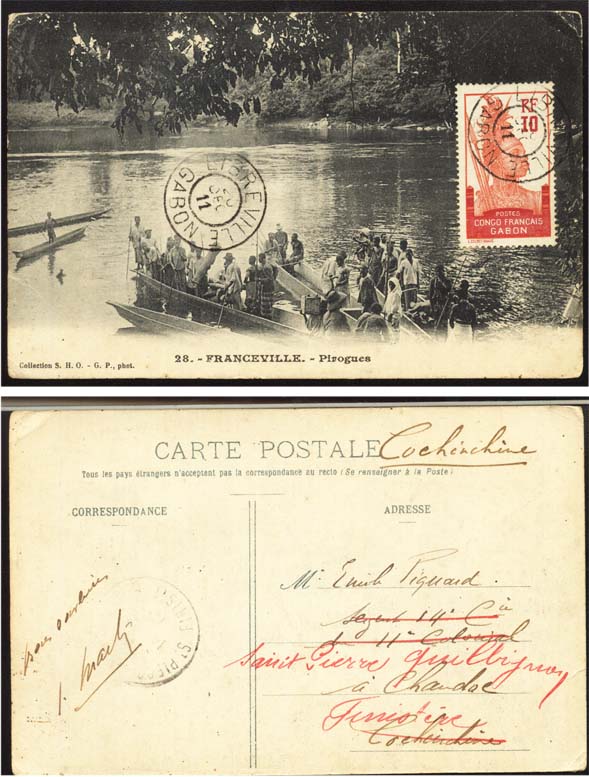 RF
10
POSTES
CONGO FRANÇAIS
GABON
LIBREVILLE
GABON
11
LIBREVILLE
20
DEC
11
GABON
28. - FRANCEVILLE. - Pirogues
Collection S. H. O. - G. P., phot.
CARTE POSTALE Cochinchine
Tous les pays étrangers n'acceptent pas la correspondance au recto (Se renseigner à la Poste)
CORRESPONDANCE
ADRESSE
Mr Emile Piguard.
Sergent 14e Cie
11e Colonial
Saint Pierre Quilbignon
à Chaudoc
Finistère
Cochinchine
ST PIERRE
FINIST